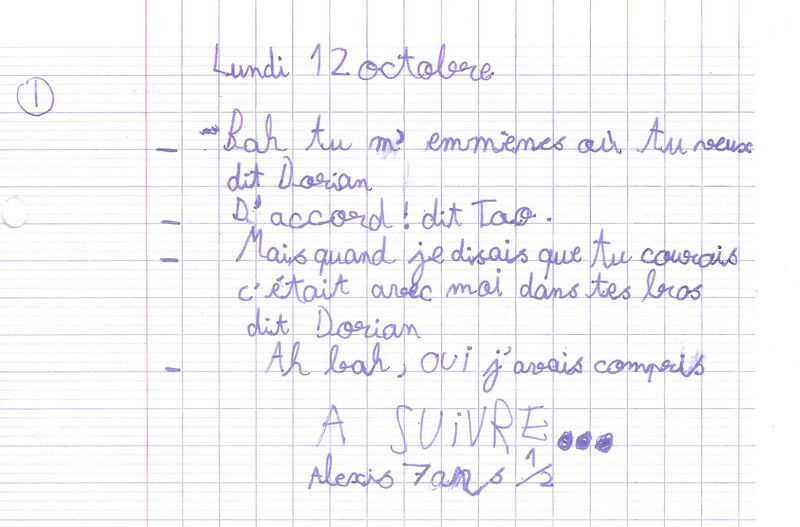 Lundi 12 octobre
1
- Bah tu m' emmènes où tu veux
dit Dorian
- D'accord ! dit Tao.
- Mais quand je disais que tu courais
c'était avec moi dans tes bras
dit Dorian
- Ah bah, OUi j'avais compris
A SUiVRE...
Alexis 7 ans 1/2